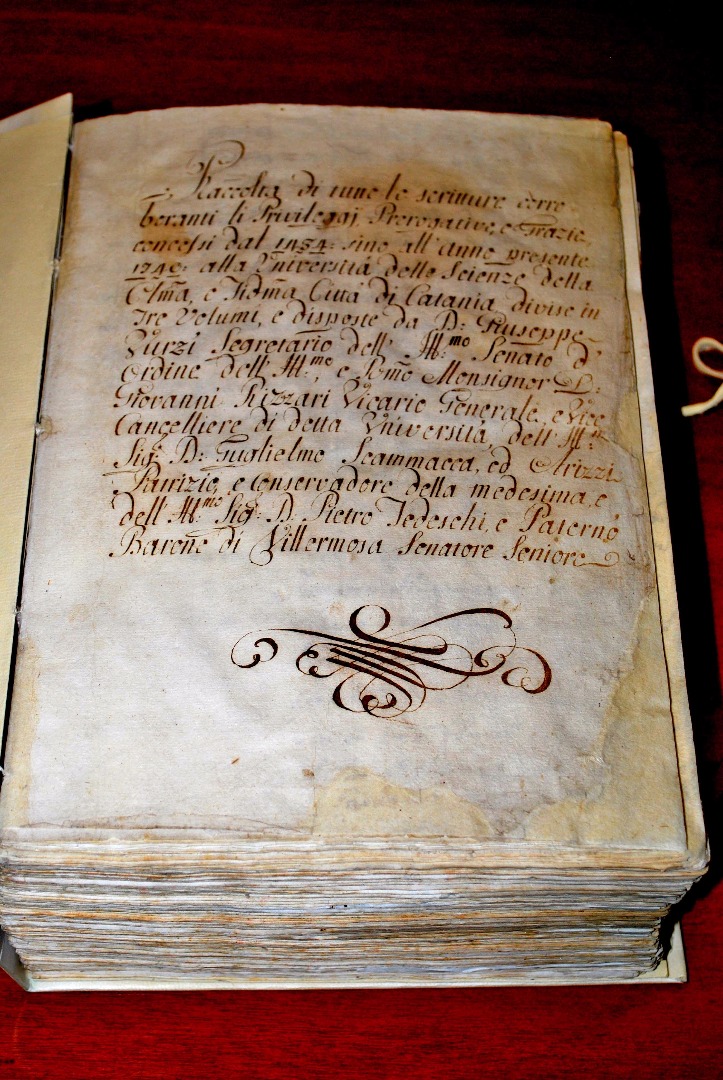 Raccolta di tutte le scritture corro-
boranti li Privileggi, Prerogative, e Grazie,
concessi dal 1434: sino all'anno presente
alla Università delle Scienze della
Clma, e Fidma Città di Catania divise in
Tre Volumi, e disposte da D: Giuseppe
Zurzi Segretario dell' Ill:mo Senato d'
Ordine dell' Ill:mo, e Rmo Monsignor D:
Giovanni Rizzari Vicario Generale, e Vice
Cancelliere di detta Università, dell' Ill:
Sig: D: Guglielmo Scammacca, ed
Patrizio, e Conservadore della medesima, e
dell' Ill:mo Sig: D. Pietro Tedeschi, e Paternò
Barone di Villermosa Senatore Seniore